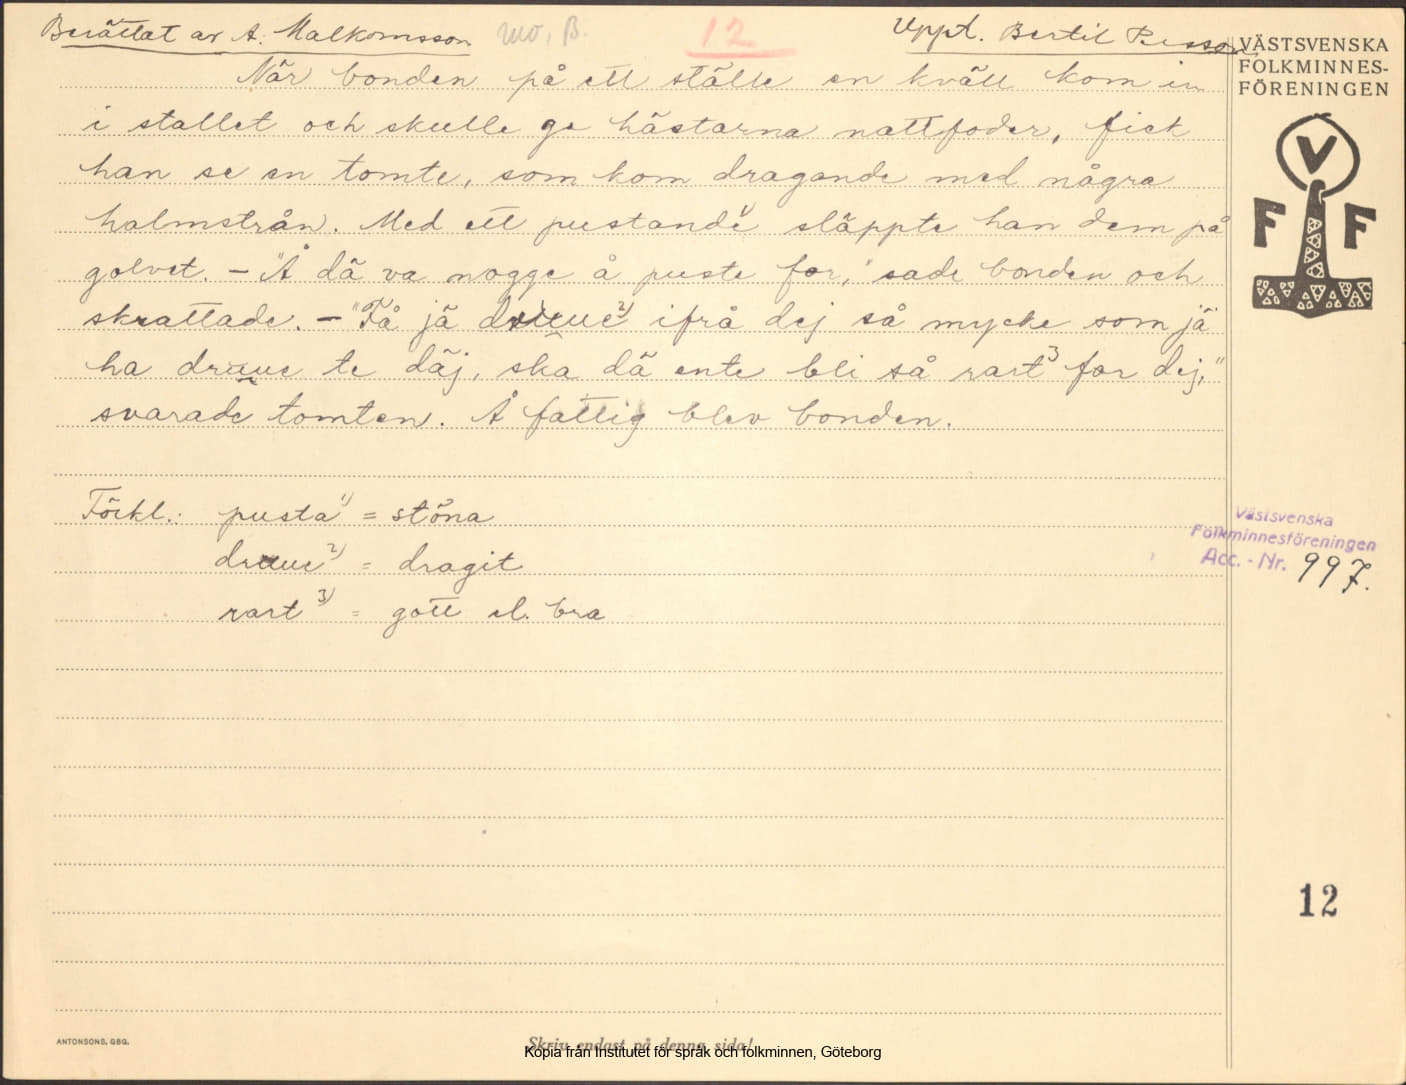 Berättat av A. Malkomsson
Mo, B.
12
Uppt. Bertil Persson
VÄSTSVENSKA
FOLKMINNES-
FÖRENINGEN
V
F F
När bonden på ett ställe en kväll kom in
i stallet och skulle ge hästarna nattfoder, fick
han se en tomte, som kom dragande med några
halmstrån. Med ett pustande¹⁾ släppte han dem på
golvet. – "Å dä va nogge å puste for," sade bonden och
skrattade. – "Få jä draue²⁾ ifrå dej så mycke som jä
ha draue te däj, ska dä ente bli så rart³ for dej,"
svarade tomten. Å fattig blev bonden.
Förkl.: pusta¹⁾ = stöna
draue²⁾ = dragit
rart³⁾ = gott el. bra
Västsvenska
Folkminnesföreningen
Acc. - Nr. 997.
12
ANTONSONS, GBG.
Skriv endast på denna sida!
Kopia från Institutet för språk och folkminnen, Göteborg